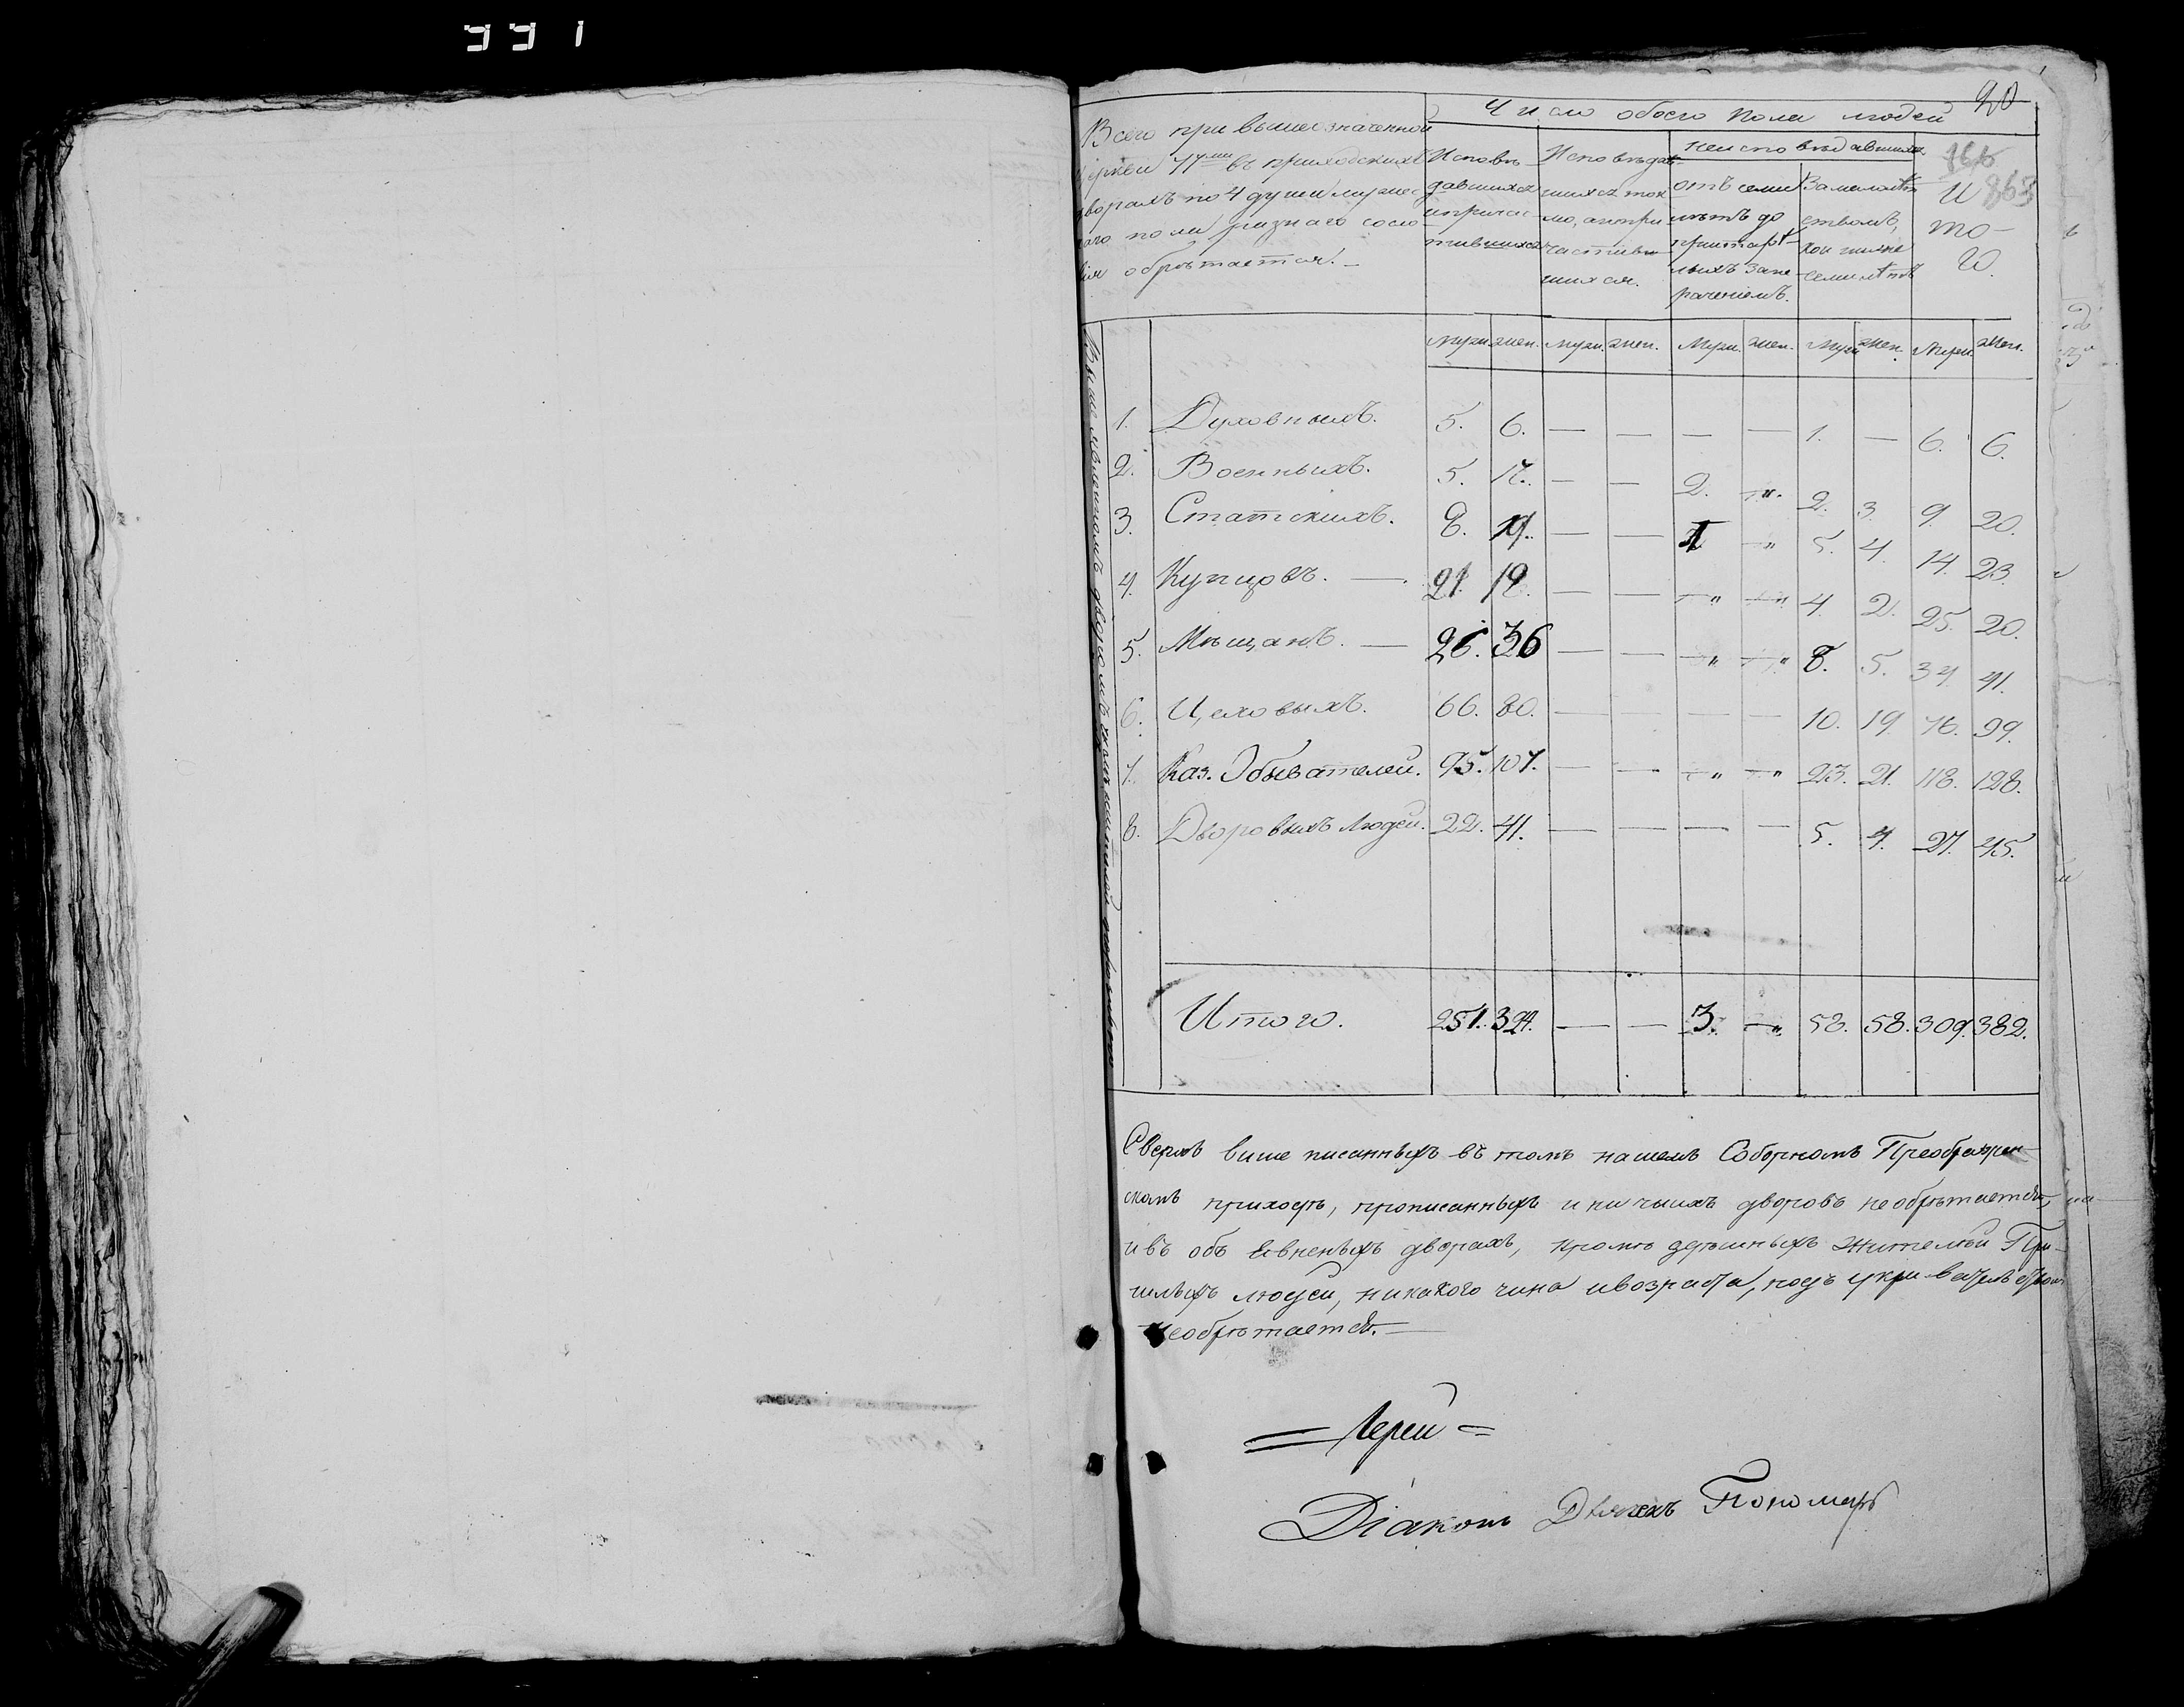 331
20
Всего при вышеозначенной
церкви 77ми въ приходскихъ
дворахъ по 4 души мужес
каго пола разнаго сосло
вія обрѣтается. —
Число обоего пола людей
Исповѣ
давшихся
и причас
тившихся
Исповѣдав
шихся ток
мо, а непри
частив
шихся.
Неисповѣдавшихся
отъ семи
лѣтъ до
престарѣ
лыхъ за не
раченіемъ.
За малолѣт
ствомъ,
кои ниже
семи лѣтъ
863
И
то-
го.
муж. жен. муж. жен. Муж. жен. Муж. жен. Муж. жен.
1. Духовныхъ. 5. 6. — — — — 1. — 6. 6.
2. Военныхъ. 5. 17. — — 2. — 2. 3. 9. 20.
3. Статскихъ. 8. 19. — — 1 — 5. 4. 14. 23.
4. Купцовъ. — 21. 18. — — — — 4. 2. 25. 20.
5. Мѣщанъ. — 26. 36 — — — — 8. 5. 34. 41.
6. Цеховыхъ. 66. 80. — — — — 10. 19. 76. 99.
7. Каз. Обывателей. 95. 107. — — — — 23. 21. 118. 128.
8. Дворовыхъ людей. 22. 41. — — — — 5. 4. 27. 45.
Итого. 251. 324. — — 3. — 58. 58. 309. 382.
Сверхъ више писанныхъ въ томъ нашемъ Соборномъ Преображен
скомъ приходѣ, прописанныхъ и ни чьихъ дворовъ необрѣтается,
и въ объявленыхъ дворахъ, кромѣ здѣшныхъ жителей При-
шлыхъ людей, никакого чина и возраста, подъ укривательствомъ
необрѣтается. —
Іерей
Діаконъ Дьячекъ Пономарь